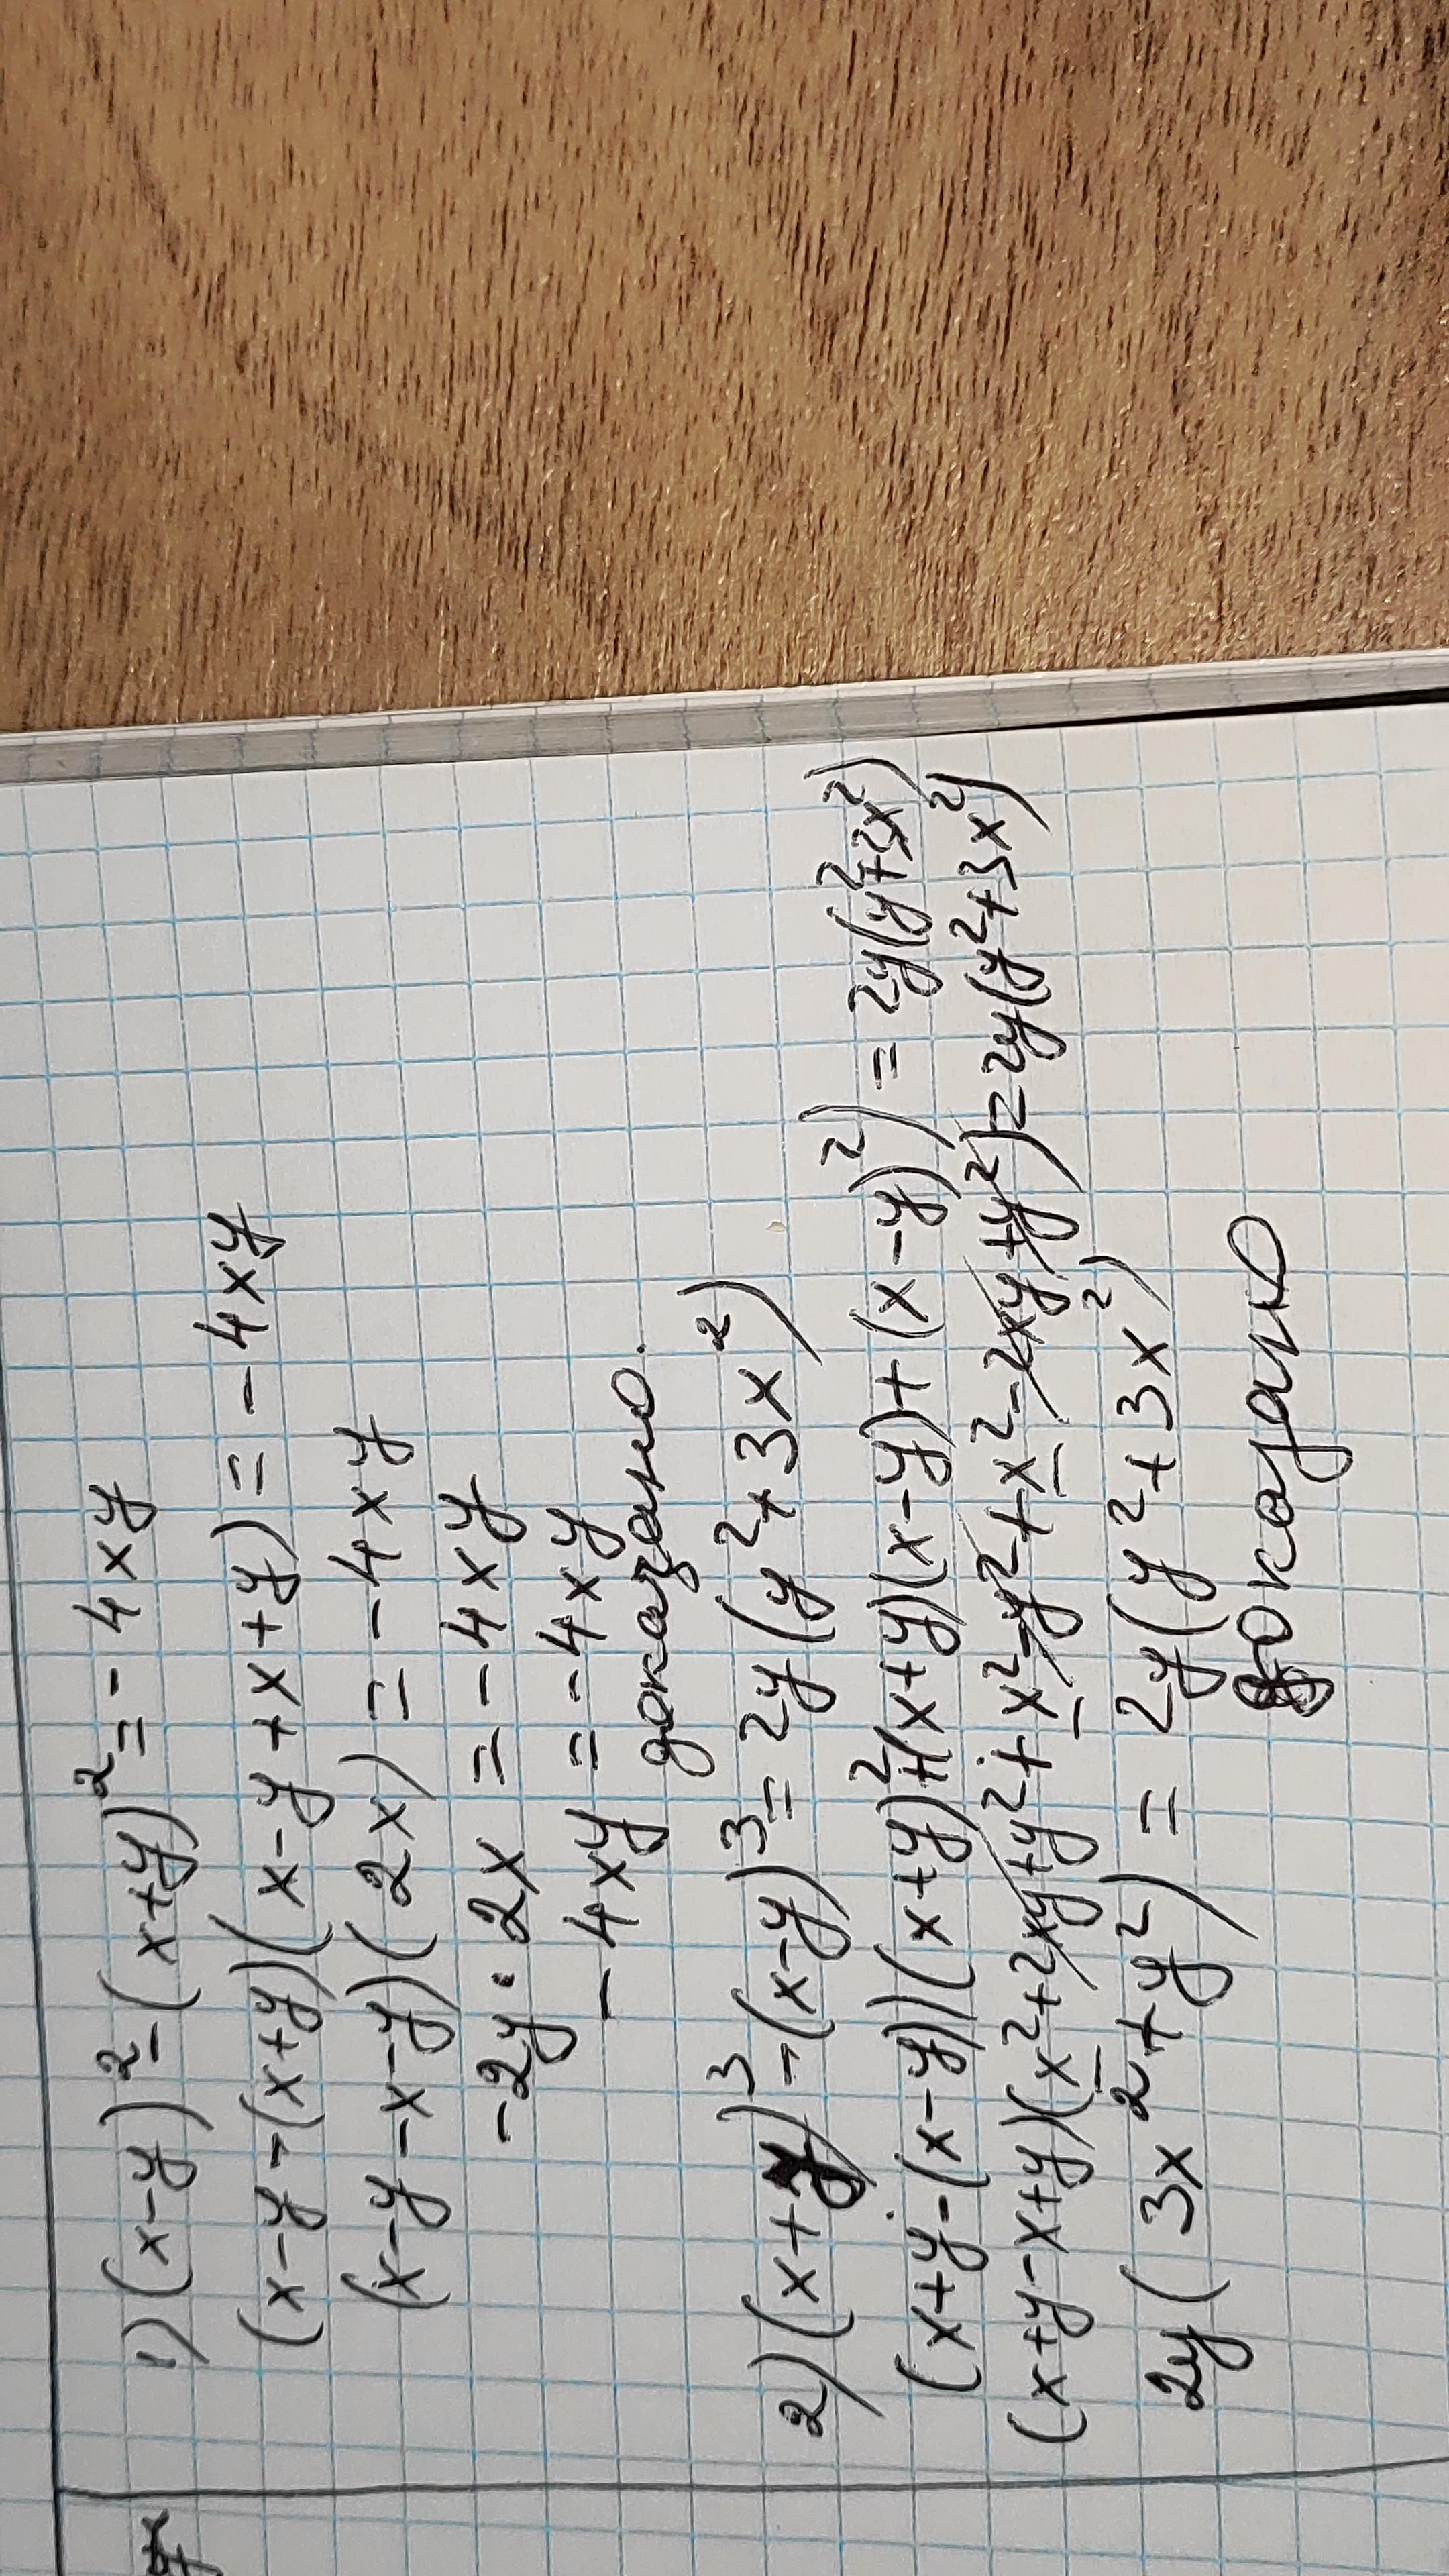 1) (x-y)²-(x+y)²=-4xy
(x-y-(x+y)(x-y+x+y)=-4xy
(x-y-x-y)(2x)=-4xy
-2y·2x=-4xy
-4xy=-4xy
доказано.
2) (x+y)³-(x-y)³=2y(y²+3x²)
(x+y-(x-y))((x+y)²+(x+y)(x-y)+(x-y)²)=2y(y²+3x²)
(x+y-x+y)(x²+2xy+y²+x²-y²+x²-2xy+y²)=2y(y²+3x²)
2y(3x²+y²)=2y(y²+3x²)
доказано